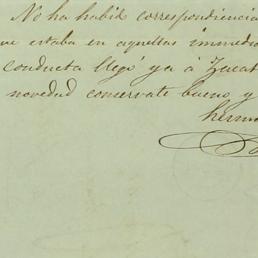 No ha habido correspondiencia
ue estaba en aquellas inmedia
conducta llegó ya á Zacat
novedad conservate bueno y
herma